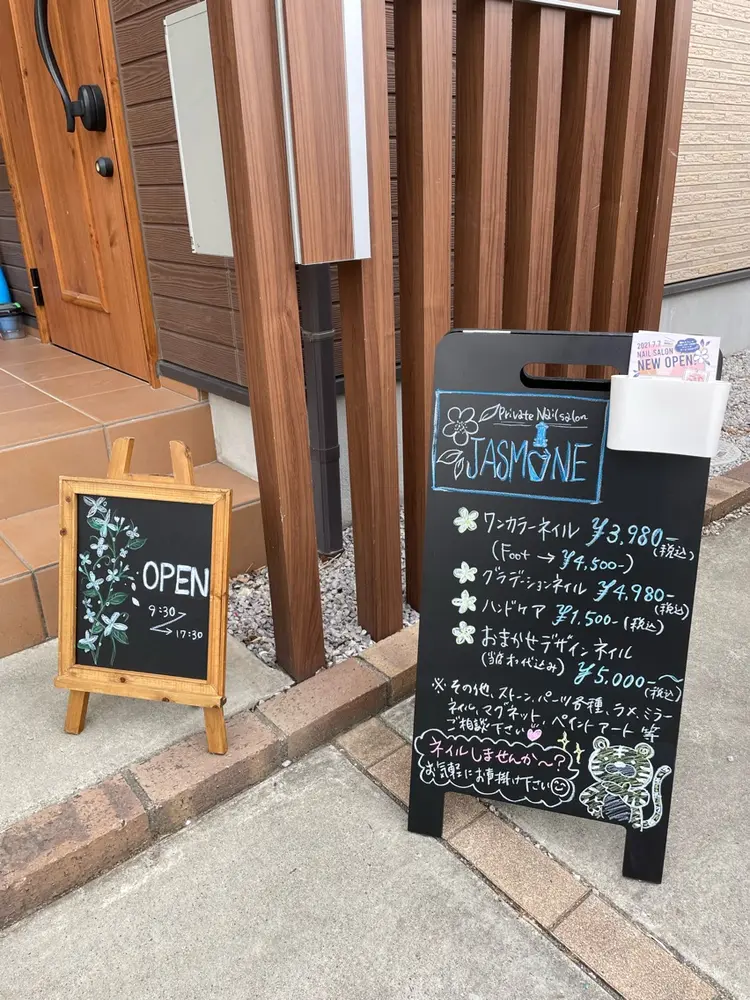 OPEN
9:30
→ 17:30
2021.7.7
NAIL SALON
NEW OPEN
Private Nailsalon
JASMINE
ワンカラーネイル ¥3,980-(税込)
(Foot → ¥4,500-)
グラデーションネイル ¥4,980-(税込)
ハンドケア ¥1,500-(税込)
おまかせデザインネイル
(当店オフ代込み) ¥5,000-~(税込)
※その他、ストーン、パーツ各種、ラメ、ミラー
ネイル、マグネット、ペイントアート 等
ご相談下さい
ネイルしませんか〜?
お気軽にお声掛け下さい